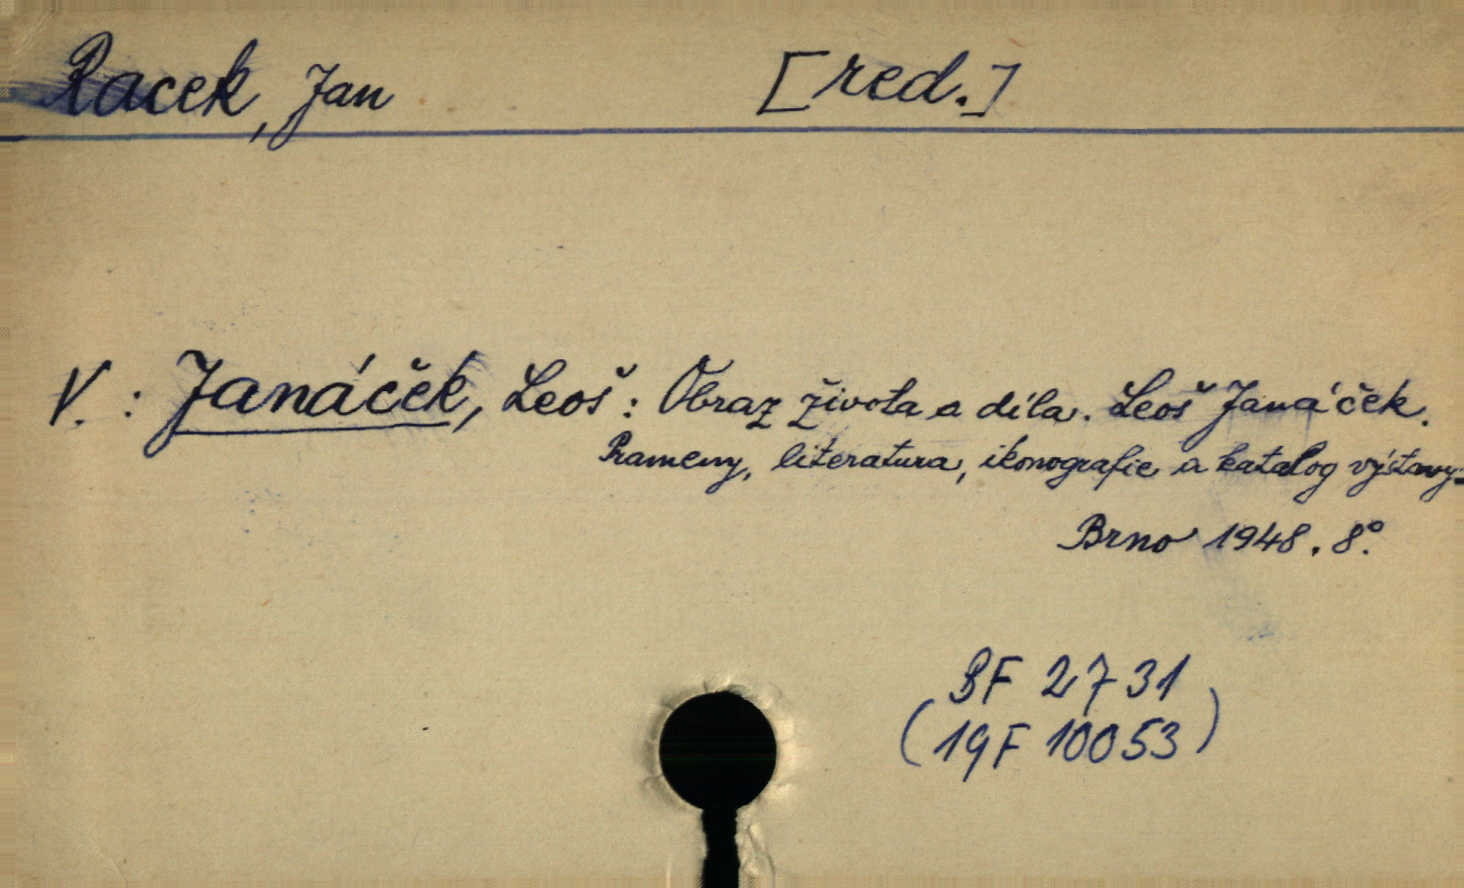 Racek, Jan [red.]
V.: Janáček, Leoš: Obraz života a díla. Leoš Janáček.
Prameny, literatura, ikonografie a katalog výstavy.
Brno 1948. 8°.
BF 2731
(19F 10053)